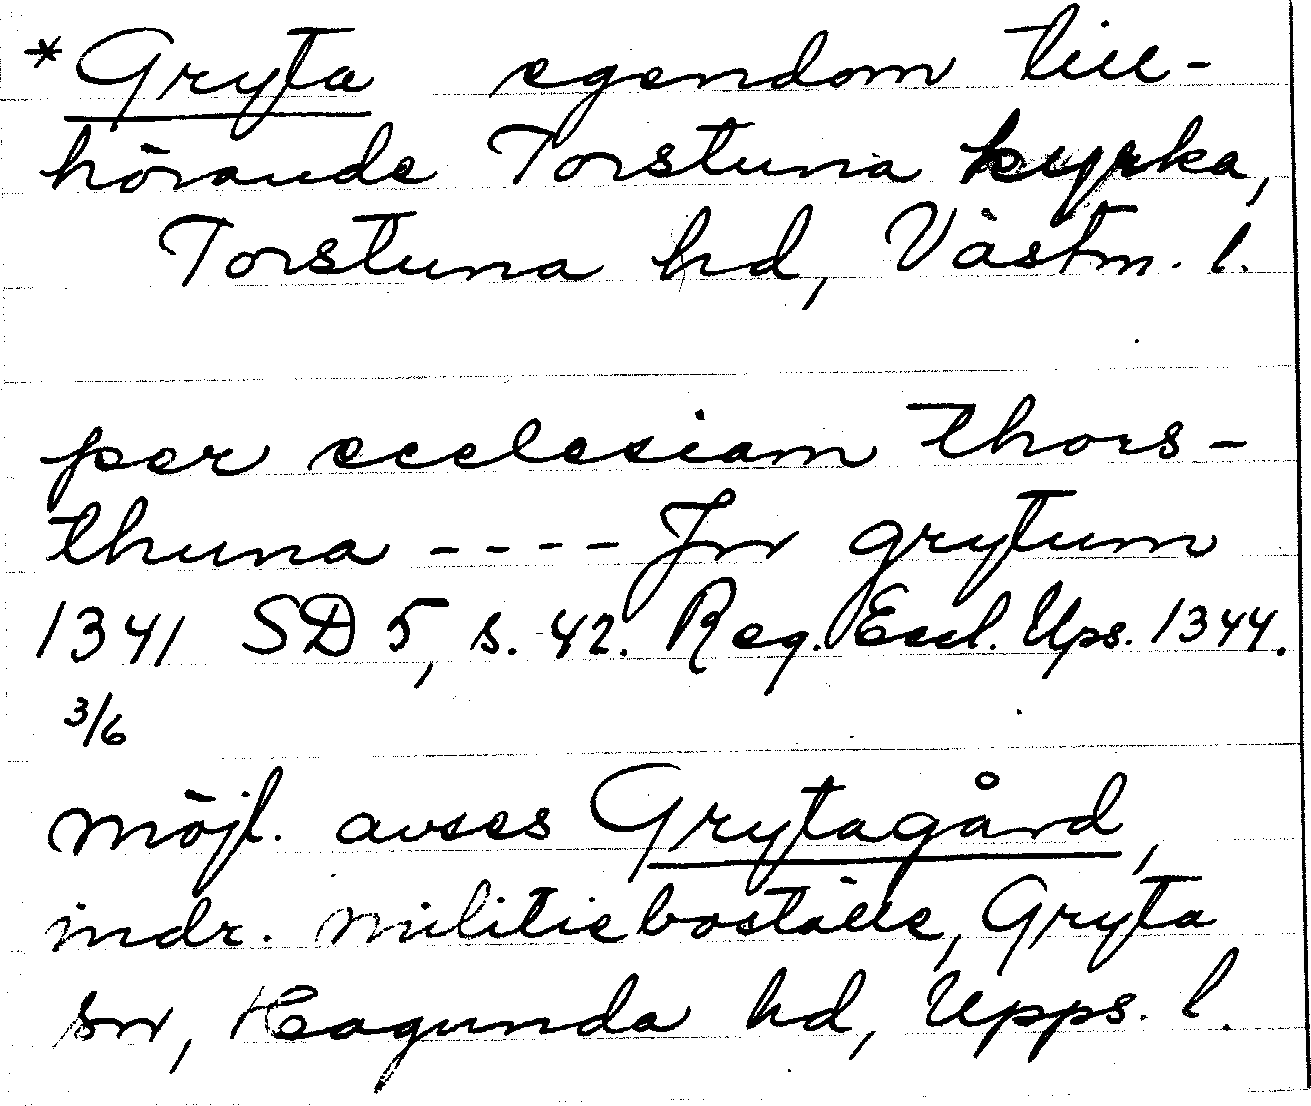 *Gryta egendom till-
hörande Torstuna kyrka,
Torstuna hd, Västm. l.
per ecclesiam thors-
thuna ---- Jnr grytum
1341 SD 5, s. 42. Reg. Eccl. Ups. 1344.
3/6
möjl. avses Grytagård,
indr. militieboställe, Gryta
sn, Hagunda hd, Upps. l.